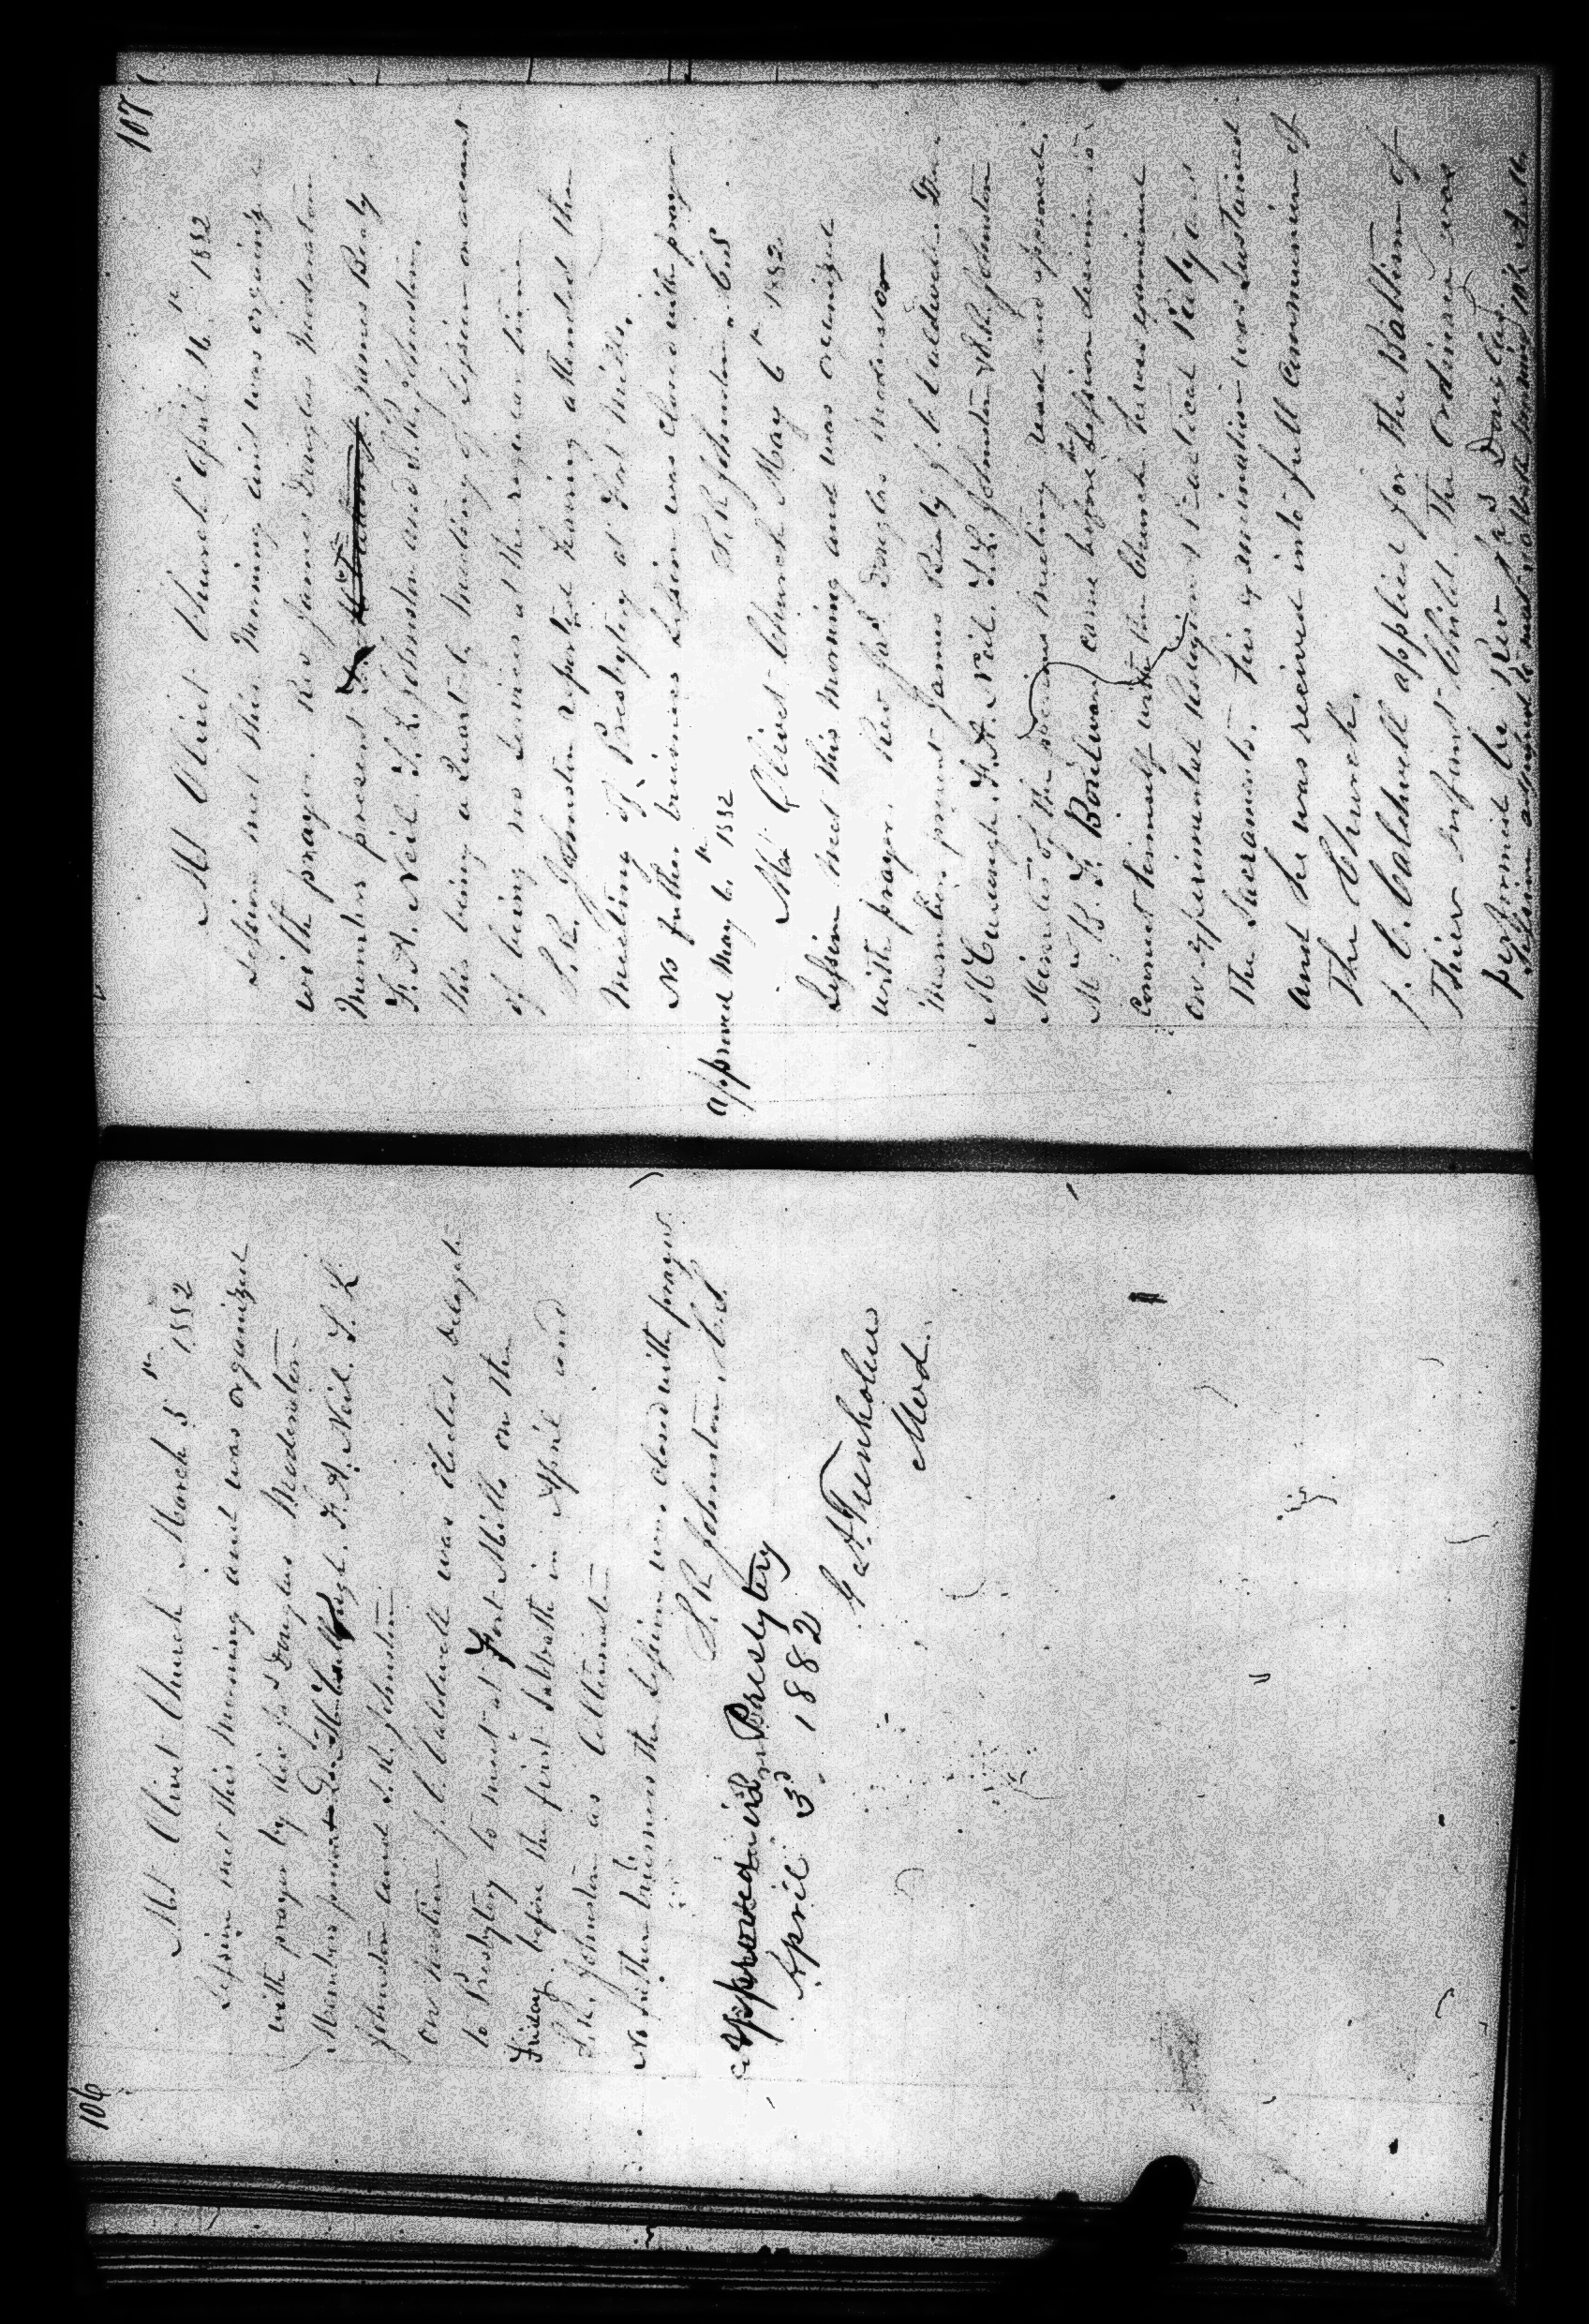 106
Mt Olivet Church March 5th 1882
Session met this morning and was organized
with prayer by Rev Jas Douglas Moderator
Members present Dr McCullough. F. A. Neil. S. L
Johnston and S. R. Johnston
On motion J. C. Caldwell was elected delegate
to Presbytery to meet at Fort Mills on the
Friday before the first Sabbath in April and
S. R. Johnston as Alternate
No further business the Session was closed with prayer
S. R Johnston C. S.
Approved in Presbytery
April 3d 1882
G A Trenholm
Mod.
107
Mt Olivet Church April 16th 1882
Session met this Morning and was organized
with prayer. Rev James Douglas Moderator
Members present James Beaty
F. A. Neil. S. L. Johnston and S. R. Johnston.
this being a Quarterly Meeting of Session on account
of being no services at the regular time
S. R. Johnston reported having attended the
Meeting of Presbytery at Fort Mills.
No futher business Session was closed with prayer
S. R Johnston C S
Approved May 6th 1882
Mt Olivet Church May 6th 1882
Session meet this morning and was organized
with prayer. Rev Jas Douglas Moderator
Members present James Beaty J. C. Caldwell. Dr.
McCullough. F. A. Neil. S. L. Johnston & S. R. Johnston
Minutes of the previous meeting read and approved.
Mr B. F. Boulware came before the Session desiring to
connect himself with the Church he was examined
on experimental Religion & Practical Piety and
the Sacraments. his examination was sustained
and he was received into full communion of
the Church.
J. C. Caldwell applied for the Babtism of
Thier infant Child. The ordinance was
performed by Rev Jas Douglas.
Session adjourned to meet